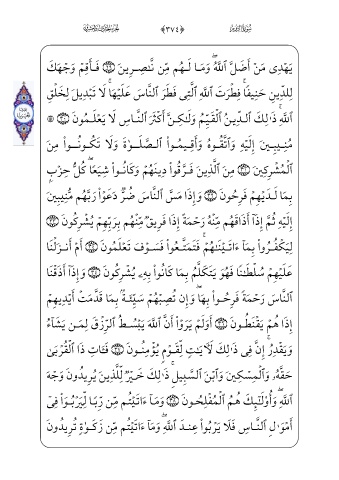 سورة الروم ﴿٣٧٤﴾ الجزء الحادي والعشرون
يَهْدِى مَنْ أَضَلَّ ٱللَّهُ وَمَا لَهُم مِّن نَّٰصِرِينَ ٢٩ فَأَقِمْ وَجْهَكَ
لِلدِّينِ حَنِيفًا فِطْرَتَ ٱللَّهِ ٱلَّتِى فَطَرَ ٱلنَّاسَ عَلَيْهَا لَا تَبْدِيلَ لِخَلْقِ
ٱللَّهِ ذَٰلِكَ ٱلدِّينُ ٱلْقَيِّمُ وَلَٰكِنَّ أَكْثَرَ ٱلنَّاسِ لَا يَعْلَمُونَ ٣٠ ۞
مُنِيبِينَ إِلَيْهِ وَٱتَّقُوهُ وَأَقِيمُوا۟ ٱلصَّلَوٰةَ وَلَا تَكُونُوا۟ مِنَ
ٱلْمُشْرِكِينَ ٣١ مِنَ ٱلَّذِينَ فَرَّقُوا۟ دِينَهُمْ وَكَانُوا۟ شِيَعًا كُلُّ حِزْبٍۭ
بِمَا لَدَيْهِمْ فَرِحُونَ ٣٢ وَإِذَا مَسَّ ٱلنَّاسَ ضُرٌّ دَعَوْا۟ رَبَّهُم مُّنِيبِينَ
إِلَيْهِ ثُمَّ إِذَآ أَذَاقَهُم مِّنْهُ رَحْمَةً إِذَا فَرِيقٌ مِّنْهُم بِرَبِّهِمْ يُشْرِكُونَ ٣٣
لِيَكْفُرُوا۟ بِمَآ ءَاتَيْنَٰهُمْ فَتَمَتَّعُوا۟ فَسَوْفَ تَعْلَمُونَ ٣٤ أَمْ أَنزَلْنَا
عَلَيْهِمْ سُلْطَٰنًا فَهُوَ يَتَكَلَّمُ بِمَا كَانُوا۟ بِهِۦ يُشْرِكُونَ ٣٥ وَإِذَآ أَذَقْنَا
ٱلنَّاسَ رَحْمَةً فَرِحُوا۟ بِهَا وَإِن تُصِبْهُمْ سَيِّئَةٌۢ بِمَا قَدَّمَتْ أَيْدِيهِمْ
إِذَا هُمْ يَقْنَطُونَ ٣٦ أَوَلَمْ يَرَوْا۟ أَنَّ ٱللَّهَ يَبْسُطُ ٱلرِّزْقَ لِمَن يَشَآءُ
وَيَقْدِرُ إِنَّ فِى ذَٰلِكَ لَءَايَٰتٍ لِّقَوْمٍ يُؤْمِنُونَ ٣٧ فَـَٔاتِ ذَا ٱلْقُرْبَىٰ
حَقَّهُۥ وَٱلْمِسْكِينَ وَٱبْنَ ٱلسَّبِيلِ ذَٰلِكَ خَيْرٌ لِّلَّذِينَ يُرِيدُونَ وَجْهَ
ٱللَّهِ وَأُو۟لَٰٓئِكَ هُمُ ٱلْمُفْلِحُونَ ٣٨ وَمَآ ءَاتَيْتُم مِّن رِّبًا لِّيَرْبُوَا۟ فِىٓ
أَمْوَٰلِ ٱلنَّاسِ فَلَا يَرْبُوا۟ عِندَ ٱللَّهِ وَمَآ ءَاتَيْتُم مِّن زَكَوٰةٍ تُرِيدُونَ